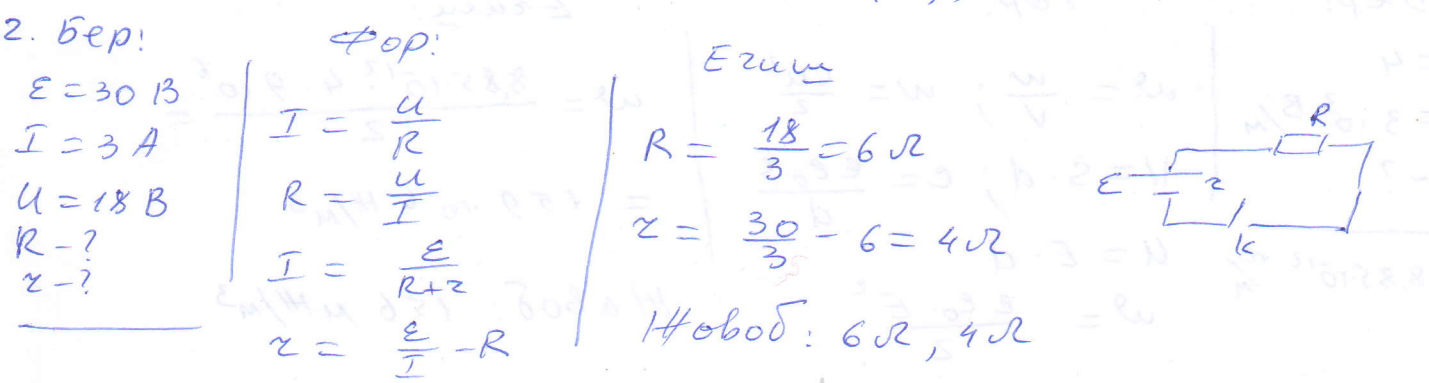 2. Бер:
ε = 30 В
I = 3 А
U = 18 В
R - ?
r - ?
Фор:
I = U/R
R = U/I
I = ε/(R+r)
r = ε/I - R
Ечиш
R = 18/3 = 6 Ω
r = 30/3 - 6 = 4 Ω
Жовоб: 6 Ω, 4 Ω
R
ε r
K